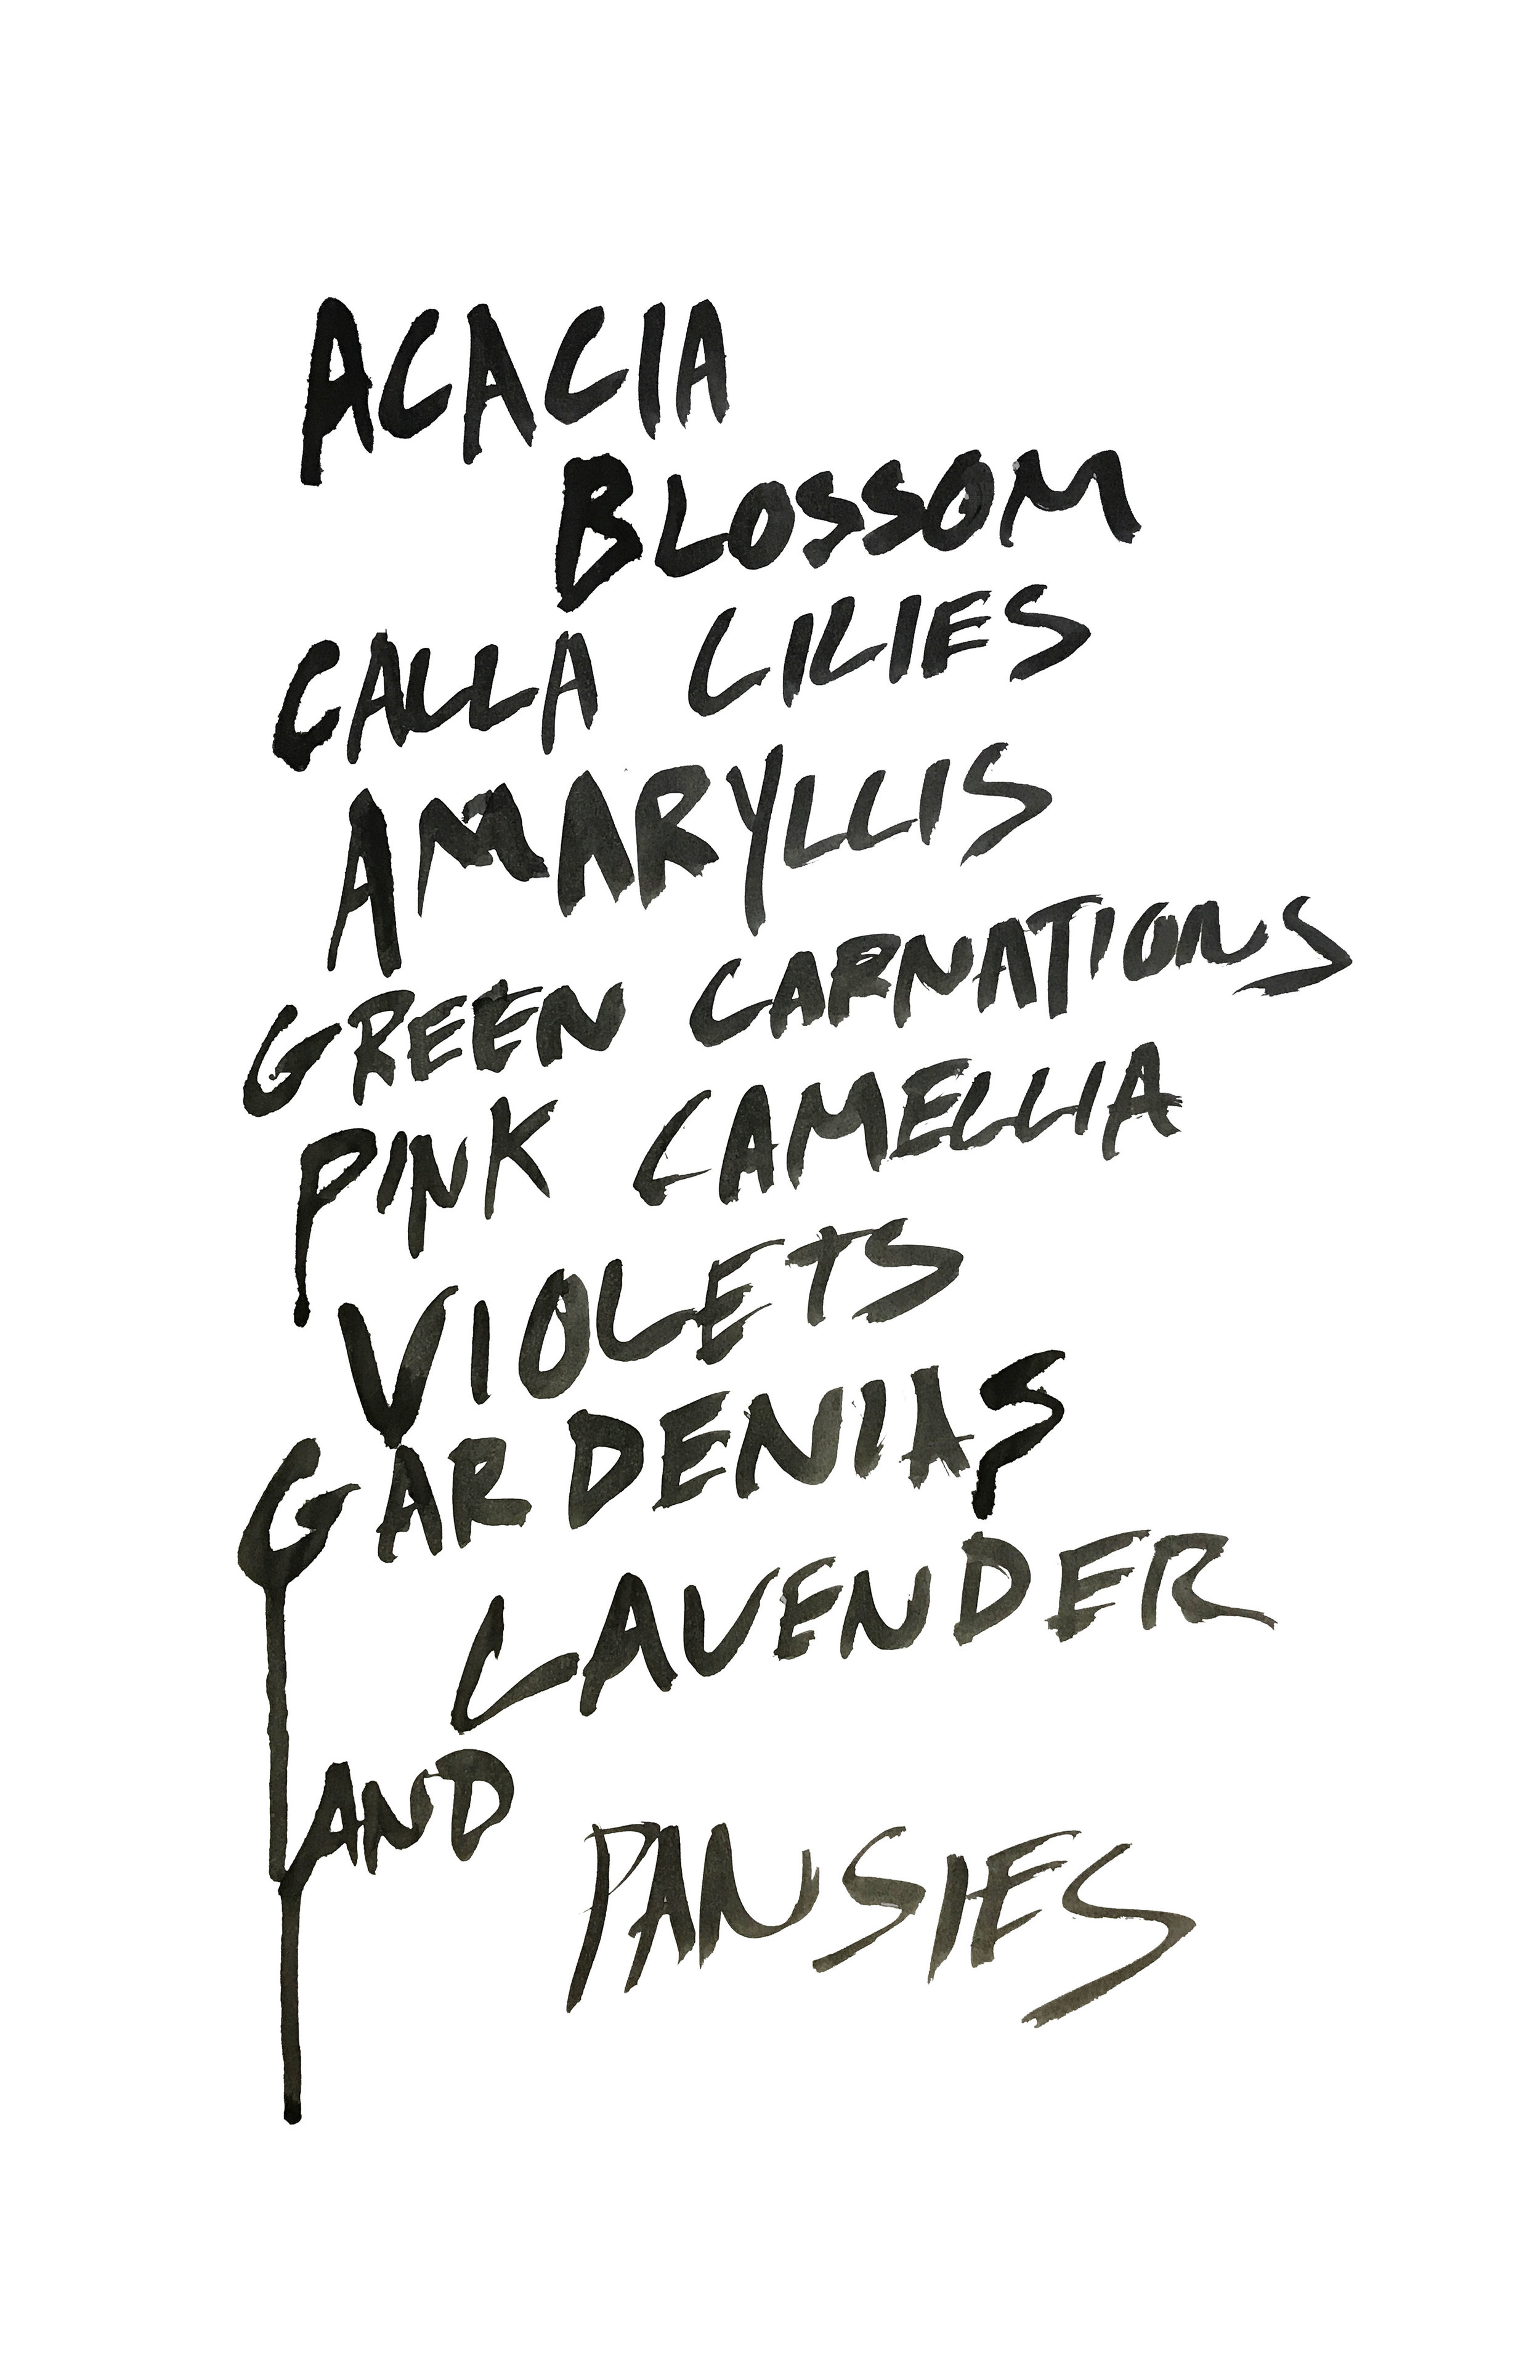 ACACIA
BLOSSOM
CALLA LILIES
AMARYLLIS
GREEN CARNATIONS
PINK CAMELLIA
VIOLETS
GARDENIAS
LAVENDER
AND
PANSIES